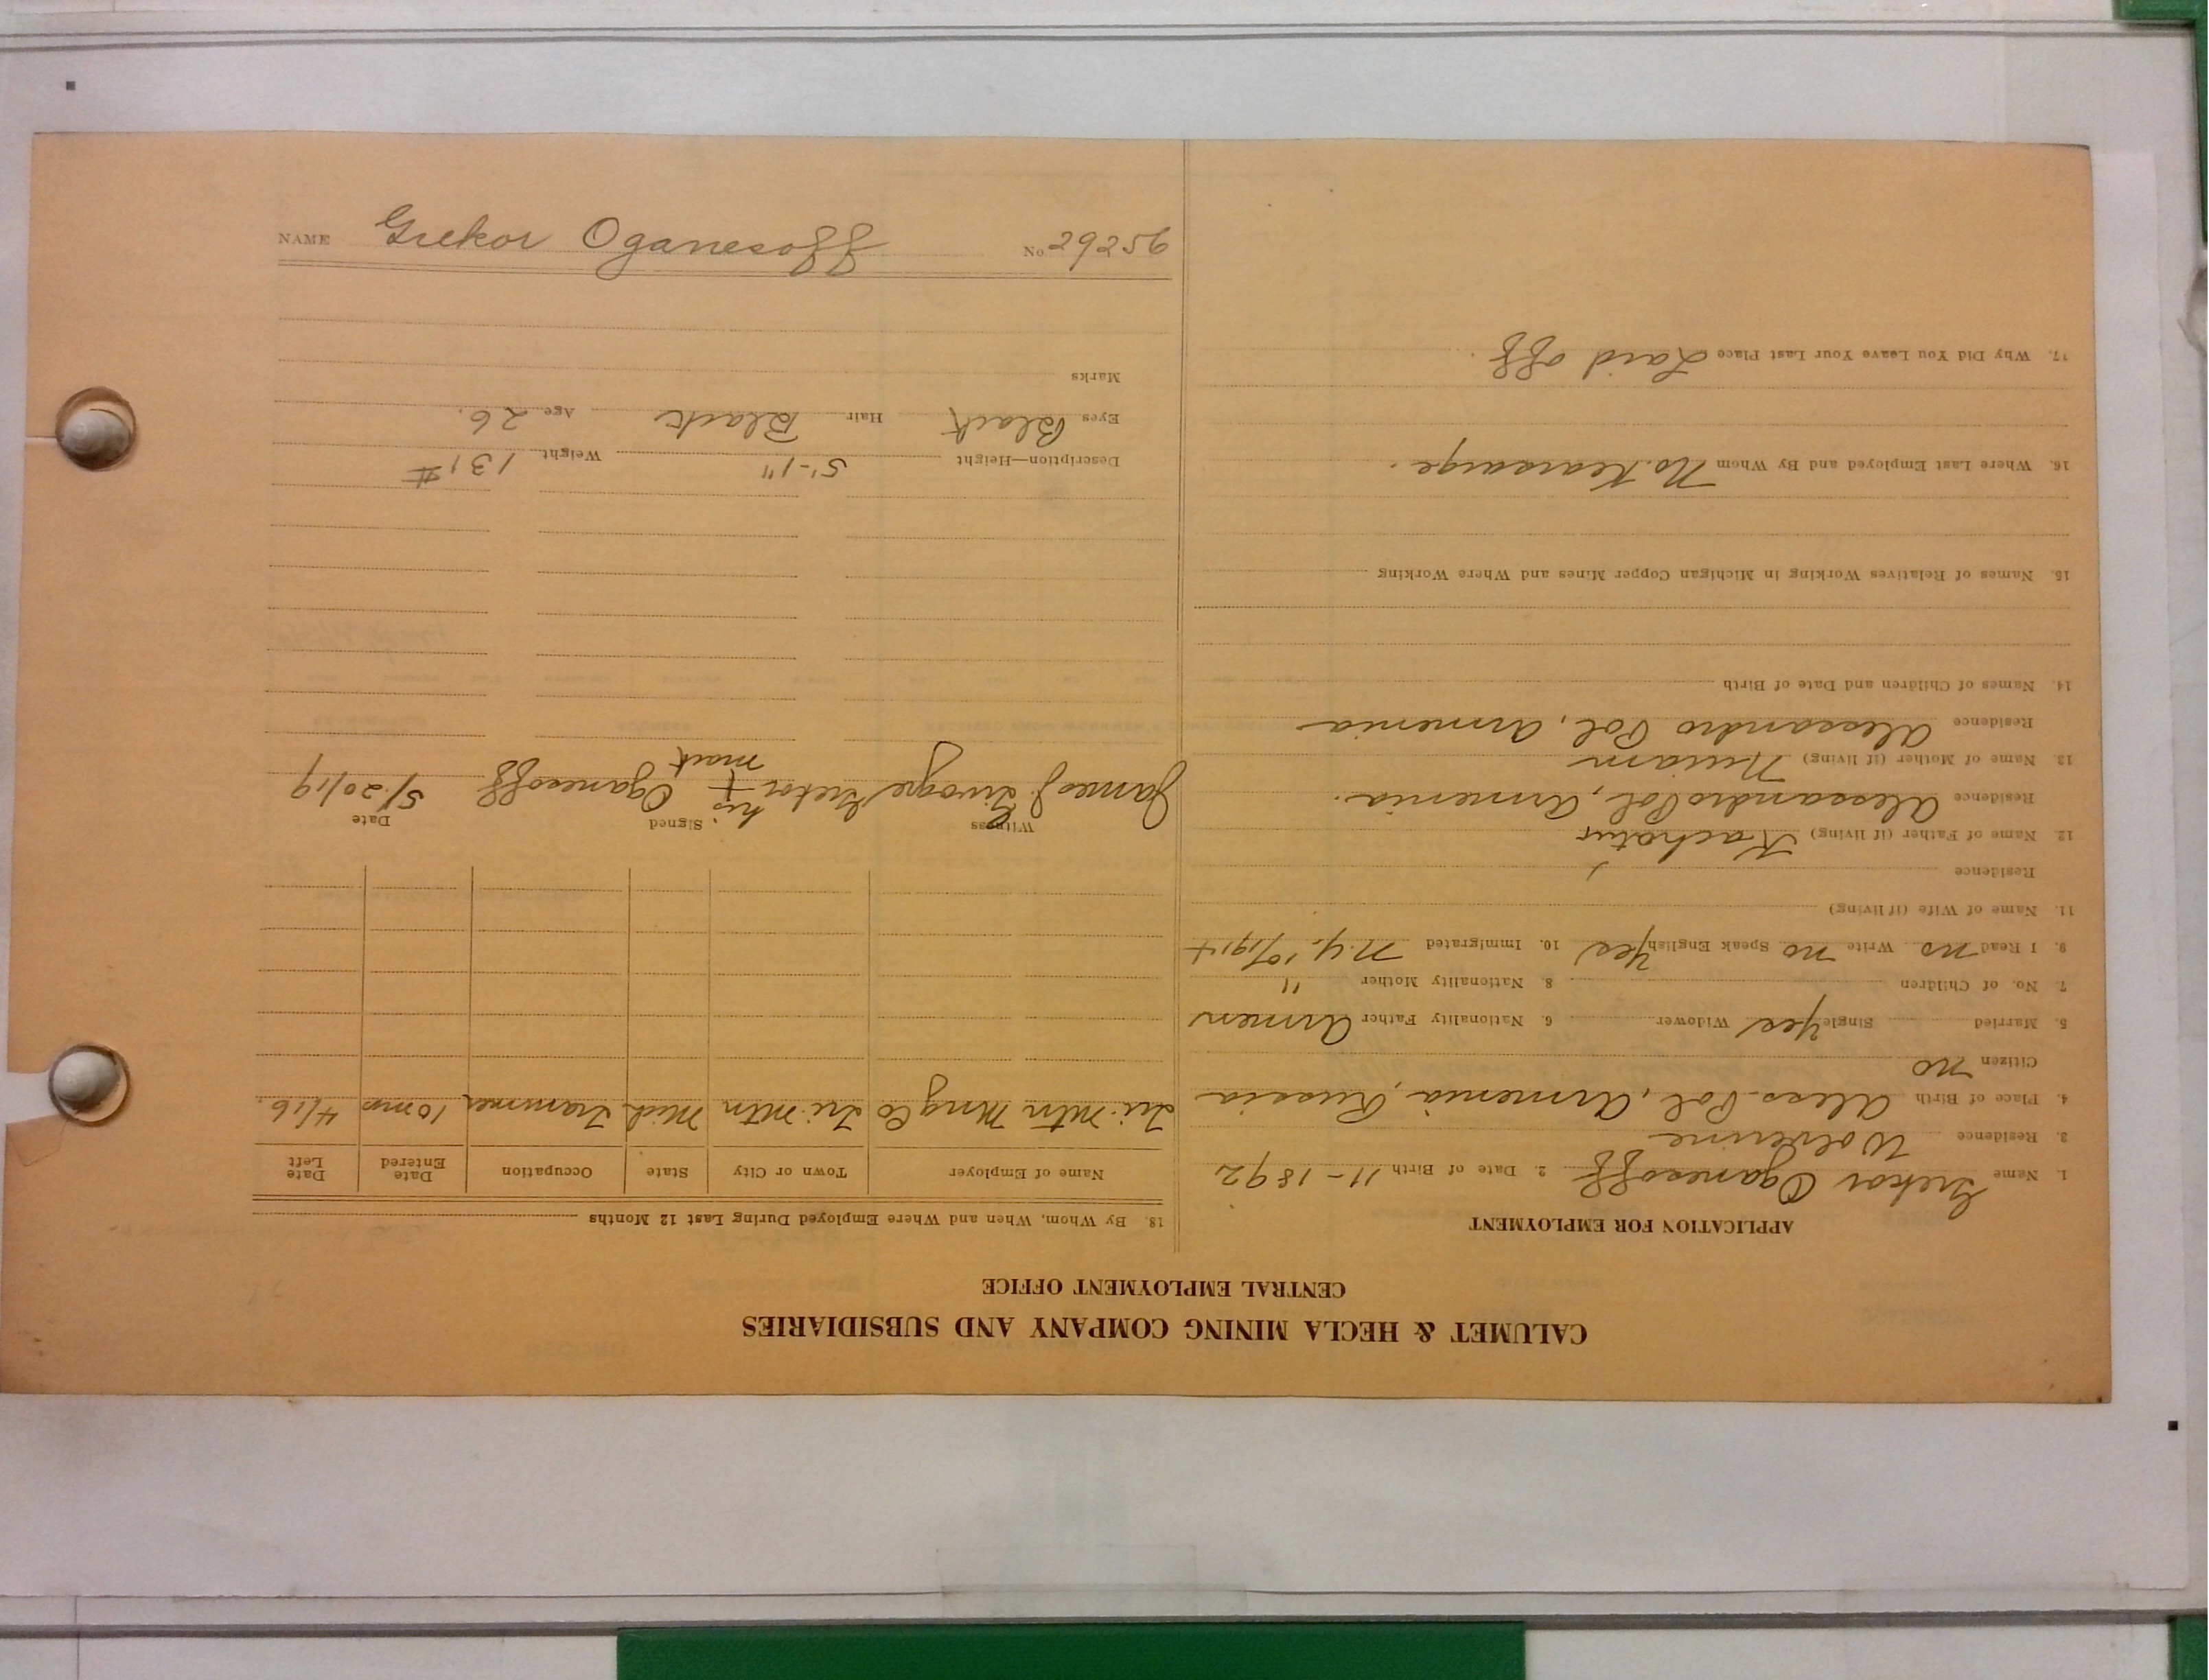 CALUMET & HECLA MINING COMPANY AND SUBSIDIARIES
CENTRAL EMPLOYMENT OFFICE
APPLICATION FOR EMPLOYMENT
1. Name Grekor Oganesoff 2. Date of Birth 11-1892
3. Residence Wolverine
4. Place of Birth Aless. Pol, Armenia, Russia
Citizen no
5. Married Single Yes Widower 6. Nationality Father Armen
7. No. of Children 8. Nationality Mother "
9. I Read no Write no Speak English Yes 10. Immigrated N.Y. 10/1914
11. Name of Wife (if living)
Residence
12. Name of Father (if living) Kachatur
Residence Alessandro Pol, Armenia.
13. Name of Mother (if living)
Residence Alessandro Pol, Armenia
14. Names of Children and Date of Birth
15. Names of Relatives Working in Michigan Copper Mines and Where Working
16. Where Last Employed and By Whom No. Kearsarge.
17. Why Did You Leave Your Last Place Laid off.
18. By Whom, When and Where Employed During Last 12 Months
Name of Employer Town or City State Occupation Date Entered Date Left
Tri-Mtn Mng Co Tri-Mtn Mich Trammer 10 mos 4/16.
Witness Signed Date
James J. his
Grekor + Oganesoff 5/20/19
mark
Description—Height 5'-1" Weight 131#
Eyes Black Hair Black Age 26.
Marks
NAME Grekor Oganesoff No 29256